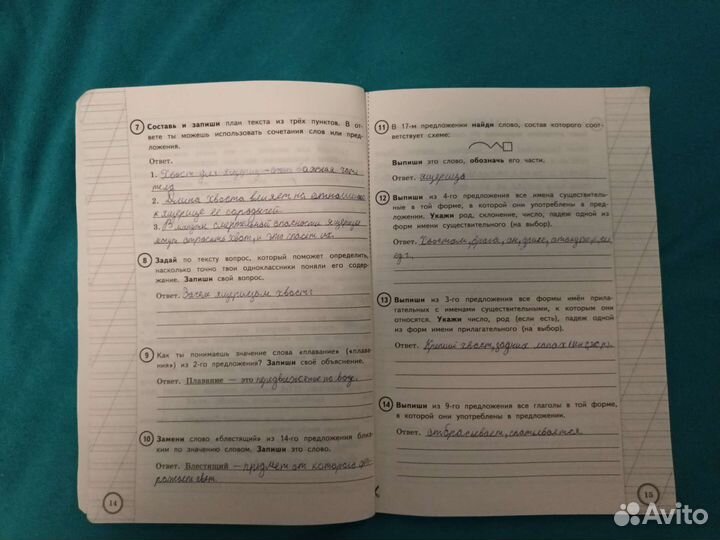 7 Составь и запиши план текста из трёх пунктов. В от-
вете ты можешь использовать сочетания слов или пред-
ложения.
Ответ.
1. Хвост для ящериц - очень важная часть
тела
2. Длина хвоста влияет на отношение
к ящерице её сородичей.
3. В минуты смертельной опасности ящерицы
могут отбросить хвост, и это спасёт их.
8 Задай по тексту вопрос, который поможет определить,
насколько точно твои одноклассники поняли его содер-
жание. Запиши свой вопрос.
Ответ. Зачем ящерицам хвосты
9 Как ты понимаешь значение слова «плавание» («плава-
ния») из 2-го предложения? Запиши своё объяснение.
Ответ. Плавание — это передвижение по воде.
10 Замени слово «блестящий» из 14-го предложения близ-
ким по значению словом. Запиши это слово.
Ответ. Блестящий – предмет от которого
ражает свет.
14
11 В 17-м предложении найди слово, состав которого соот-
ветствует схеме:
Выпиши это слово, обозначь его части.
Ответ. ящерица
12 Выпиши из 4-го предложения все имена существитель-
ные в той форме, в которой они употреблены в пред-
ложении. Укажи род, склонение, число, падеж одной из
форм имени существительного (на выбор).
Ответ. Хвостом, врага,
ед.ч.
13 Выпиши из 3-го предложения все формы имён прила-
гательных с именами существительными, к которым они
относятся. Укажи число, род (если есть), падеж одной
из форм имени прилагательного (на выбор).
Ответ. хвост, задних лапах
14 Выпиши из 9-го предложения все глаголы в той форме,
в которой они употреблены в предложении.
Ответ. отбрасывает,
15
Avito